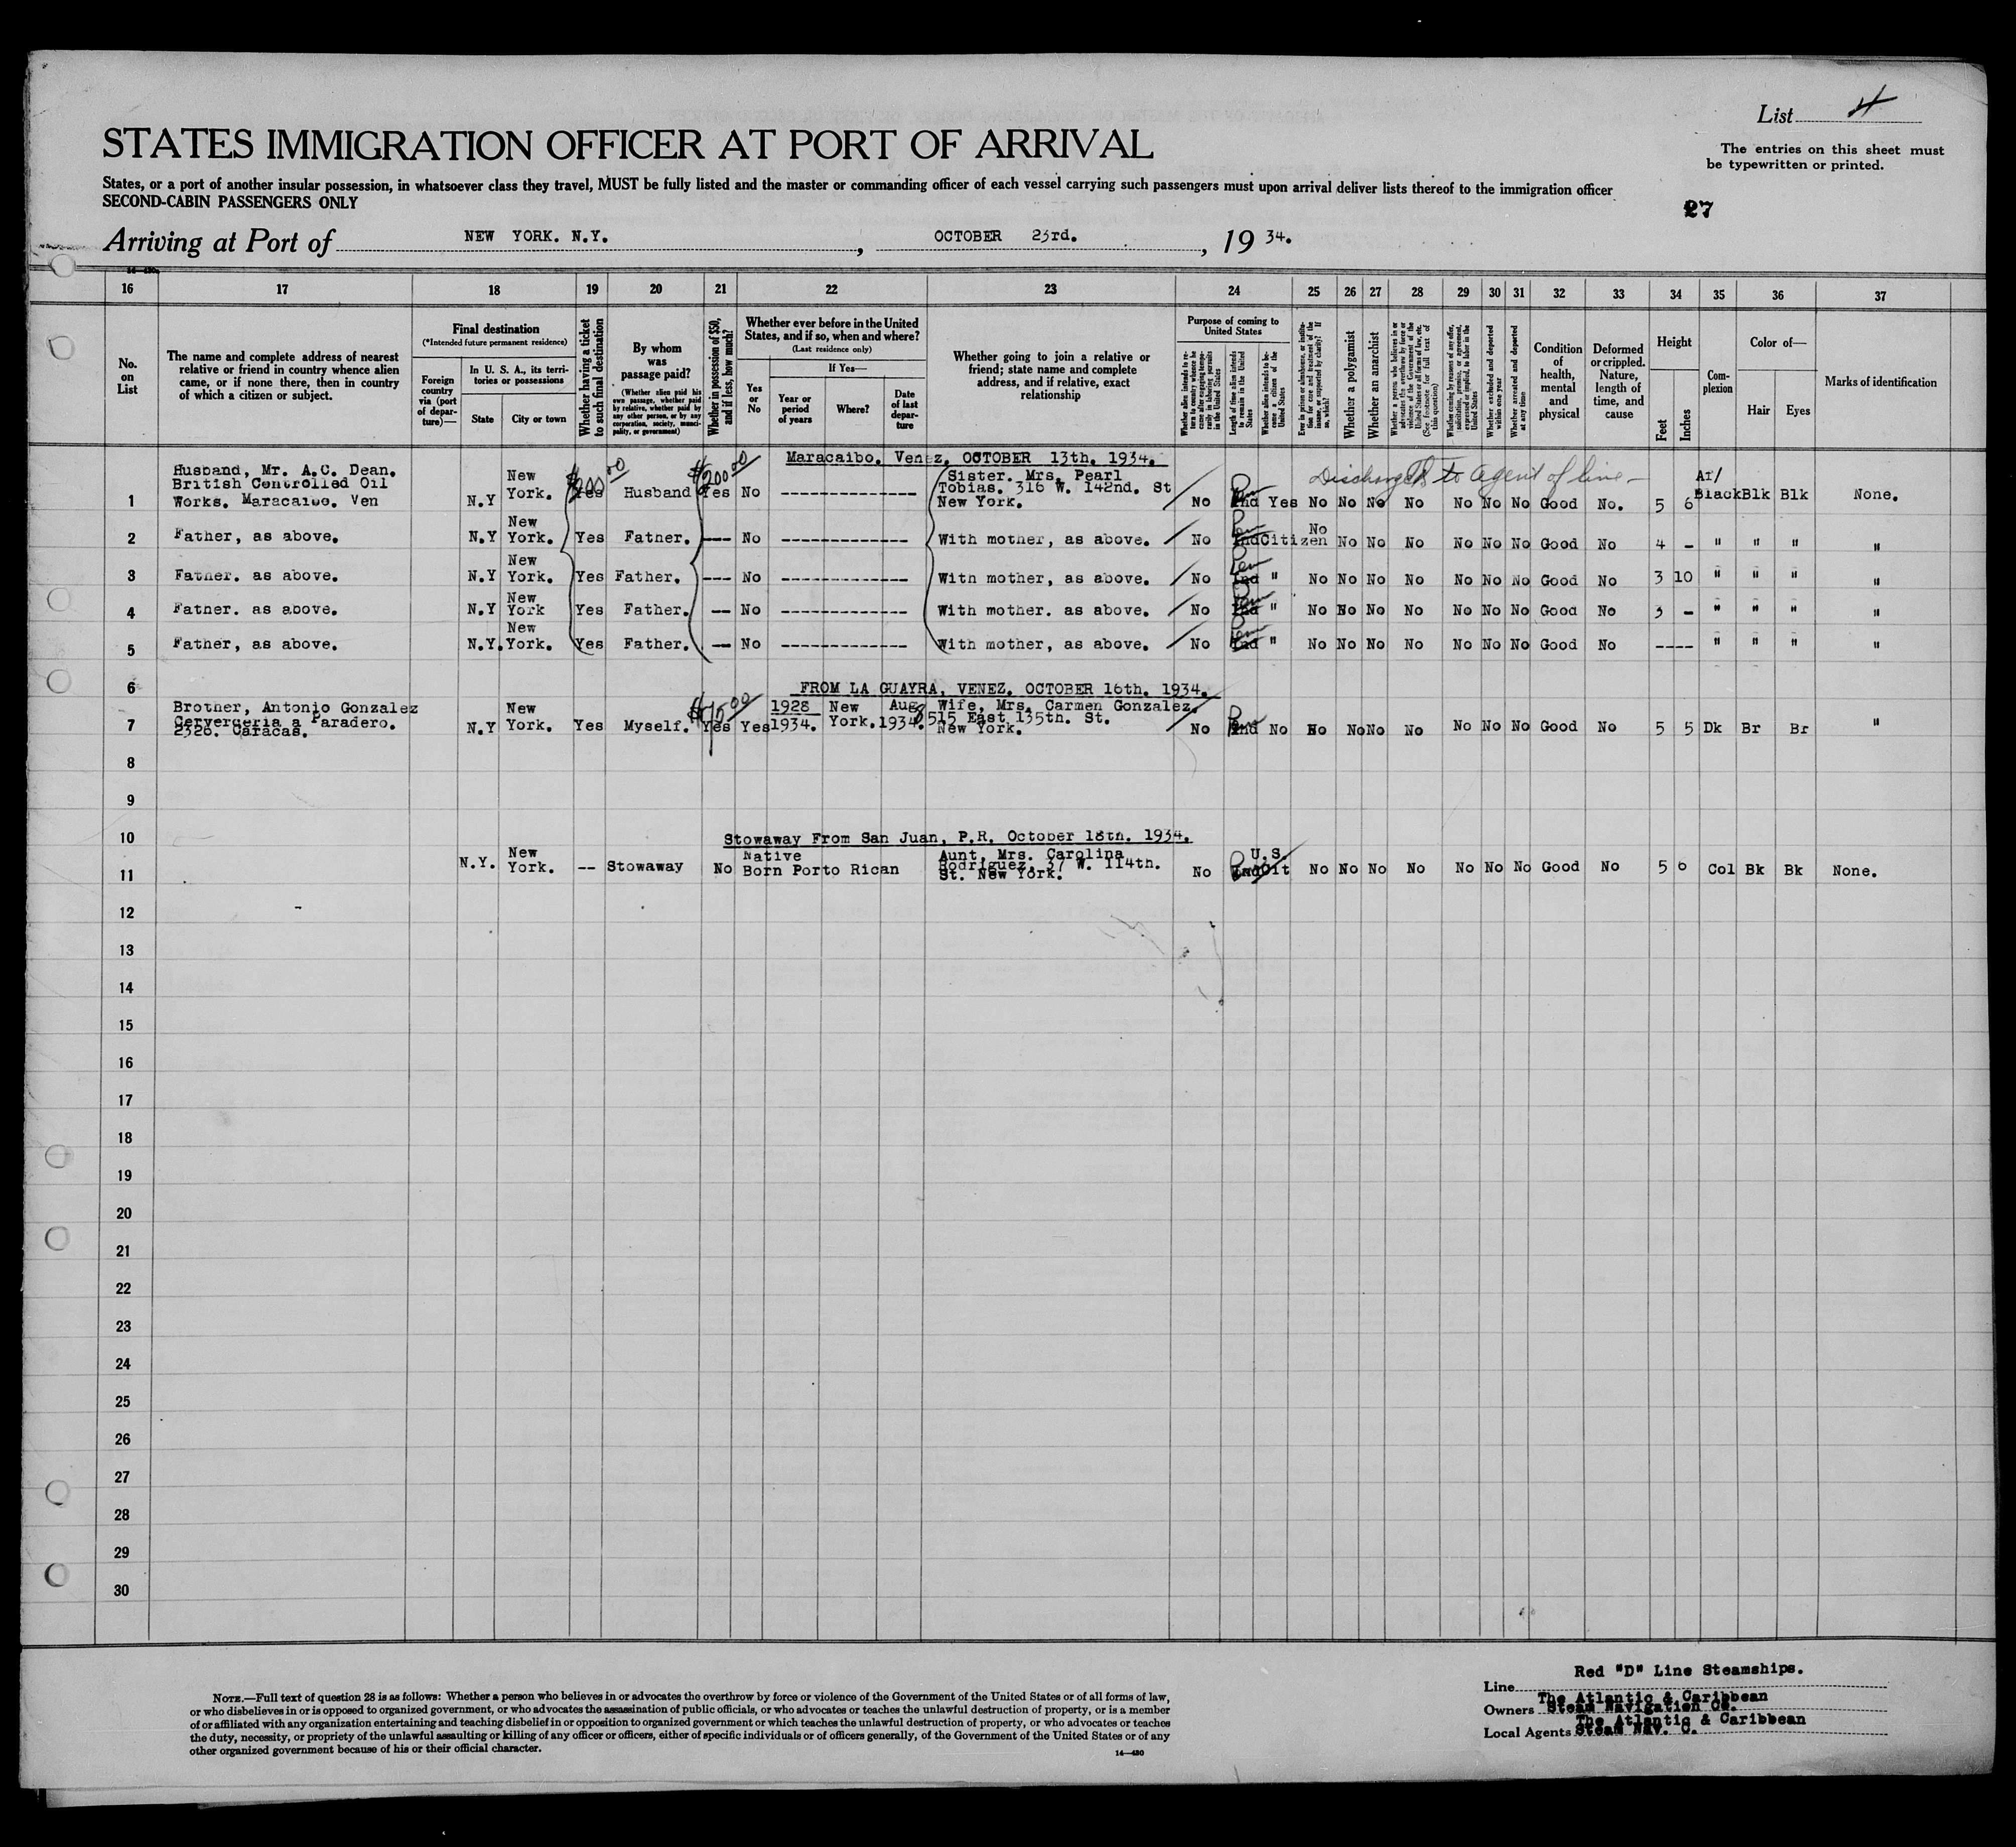 List 4
STATES IMMIGRATION OFFICER AT PORT OF ARRIVAL
The entries on this sheet must
be typewritten or printed.
States, or a port of another insular possession, in whatsoever class they travel, MUST be fully listed and the master or commanding officer of each vessel carrying such passengers must upon arrival deliver lists thereof to the immigration officer
SECOND-CABIN PASSENGERS ONLY
27
Arriving at Port of NEW YORK. N.Y. , OCTOBER 23rd. , 19 34.
16 17 18 19 20 21 22 23 24 25 26 27 28 29 30 31 32 33 34 35 36 37
No. on List
The name and complete address of nearest relative or friend in country whence alien came, or if none there, then in country of which a citizen or subject.
Final destination
(*Intended future permanent residence)
Foreign country via (port of departure)—
In U. S. A., its territories or possessions
State City or town
Whether having a ticket to such final destination
By whom was passage paid?
(Whether alien paid his own passage, whether paid by relative, whether paid by any other person, or by any corporation, society, municipality, or government)
Whether in possession of $50, and if less, how much?
Whether ever before in the United States, and if so, when and where?
(Last residence only)
Yes or No
If Yes—
Year or period of years Where? Date of last departure
Whether going to join a relative or friend; state name and complete address, and if relative, exact relationship
Purpose of coming to United States
Whether alien intends to return to country whence he came after engaging temporarily in laboring pursuits in the United States
Length of time alien intends to remain in the United States
Whether alien intends to become a citizen of the United States
Ever in prison or almshouse, or institution for care and treatment of the insane, or supported by charity? If so, which?
Whether a polygamist
Whether an anarchist
Whether a person who believes in or advocates the overthrow by force or violence of the Government of the United States or all forms of law, etc. (See footnote for full text of this question)
Whether coming by reasons of any offer, solicitation, promise, or agreement, expressed or implied, to labor in the United States
Whether excluded and deported within one year
Whether arrested and deported at any time
Condition of health, mental and physical
Deformed or crippled. Nature, length of time, and cause
Height
Feet Inches
Complexion
Color of—
Hair Eyes
Marks of identification
Maracaibo. Venez. OCTOBER 13th. 1934.
Discharged to Agent of line —
1 Husband, Mr. A.C. Dean. British Controlled Oil Works. Maracaibo. Ven N.Y New York. Yes $200 00 Husband Yes $200 00 No ---------------- Sister. Mrs. Pearl Tobias. 316 W. 142nd. St New York. No Ind Yes No No No No No No No Good No. 5 6 Black Blk Blk None.
2 Father, as above. N.Y New York. Yes Father. --- No --------------- With mother, as above. No Ind Citizen No No No No No No No Good No 4 - " " " "
3 Father. as above. N.Y New York. Yes Father. --- No --------------- With mother, as above. No Ind " No No No No No No No Good No 3 10 " " " "
4 Father. as above. N.Y New York Yes Father. -- No --------------- With mother. as above. No Ind " No No No No No No No Good No 3 - " " " "
5 Father, as above. N.Y. New York. Yes Father. -- No --------------- With mother, as above. No Ind " No No No No No No No Good No ---- " " " "
6 FROM LA GUAYRA, VENEZ. OCTOBER 16th. 1934.
7 Brother, Antonio Gonzalez Cervergeria a Paradero. 2326. Caracas. N.Y New York. Yes Myself. $75 00 Yes Yes 1928 1934. New York. Aug 8 1934. Wife, Mrs. Carmen Gonzalez. 515 East 135th. St. New York. No Ind No No No No No No No No Good No 5 5 Dk Br Br "
8
9
10 Stowaway From San Juan, P.R. October 18th. 1934.
11 N.Y. New York. -- Stowaway No Native Born Porto Rican Aunt, Mrs. Carolina Rodriguez, 37 W. 114th. St. New York. No Ind U.S. Cit No No No No No No No Good No 5 6 Col Bk Bk None.
12
13
14
15
16
17
18
19
20
21
22
23
24
25
26
27
28
29
30
Line Red "D" Line Steamships.
Owners The Atlantic & Caribbean Steam Navigation Co.
Local Agents The Atlantic & Caribbean Steam Nav. C.
NOTE.—Full text of question 28 is as follows: Whether a person who believes in or advocates the overthrow by force or violence of the Government of the United States or of all forms of law,
or who disbelieves in or is opposed to organized government, or who advocates the assassination of public officials, or who advocates or teaches the unlawful destruction of property, or is a member
of or affiliated with any organization entertaining and teaching disbelief in or opposition to organized government or which teaches the unlawful destruction of property, or who advocates or teaches
the duty, necessity, or propriety of the unlawful assaulting or killing of any officer or officers, either of specific individuals or of officers generally, of the Government of the United States or of any
other organized government because of his or their official character.
14—430